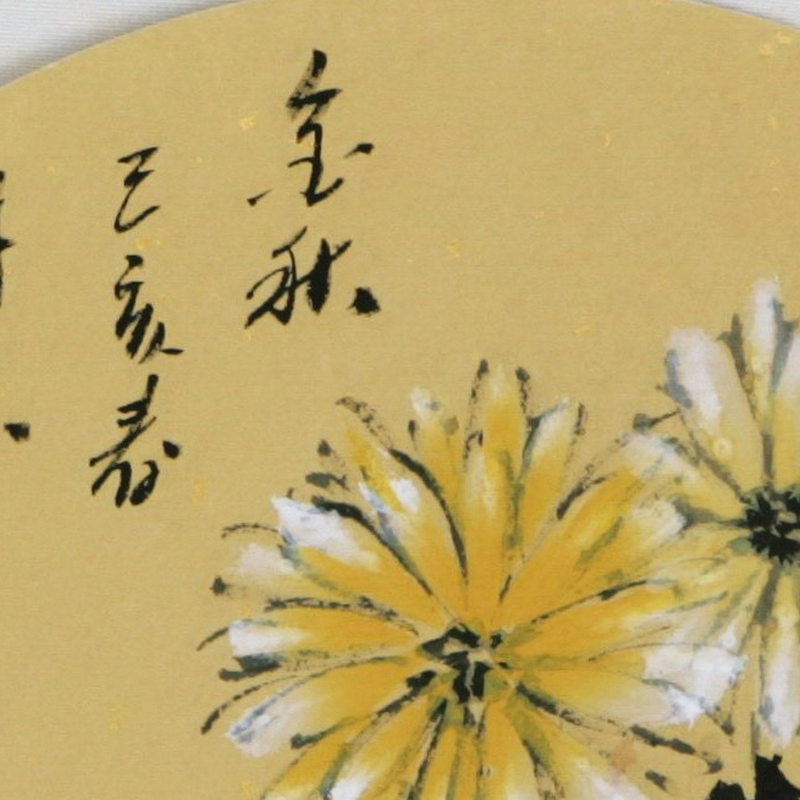 金秋
己亥春